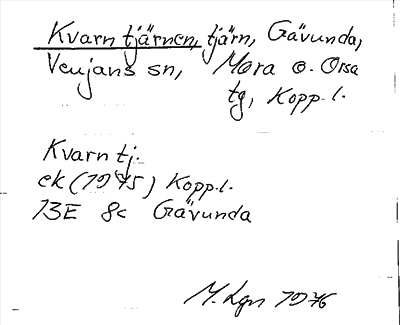 Kvarntjärnen, tjärn, Gävunda,
Venjans sn, Mora o. Orsa
tg, Kopp. l.
Kvarntj.
ek (1975) Kopp. l.
13E 8c Gävunda
M. Lgn 1976